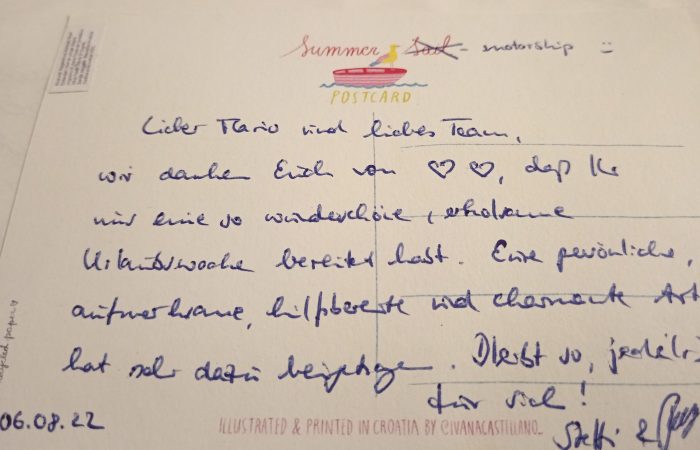 Summer Sail - motorship :)
POSTCARD
Lieber Mario und liebes Team,
wir danken Euch von ♡ ♡, daß Ihr
uns eine so wunderschöne, erholsame
Urlaubswoche bereitet habt. Eure persönliche,
aufmerksame, hilfsbereite und charmante Art
hat sehr dazu beigetragen. Bleibt so, jede(r)
für sich!
06.08.22
ILLUSTRATED & PRINTED IN CROATIA BY @IVANACASTELLANO_
Steffi &
recycled paper